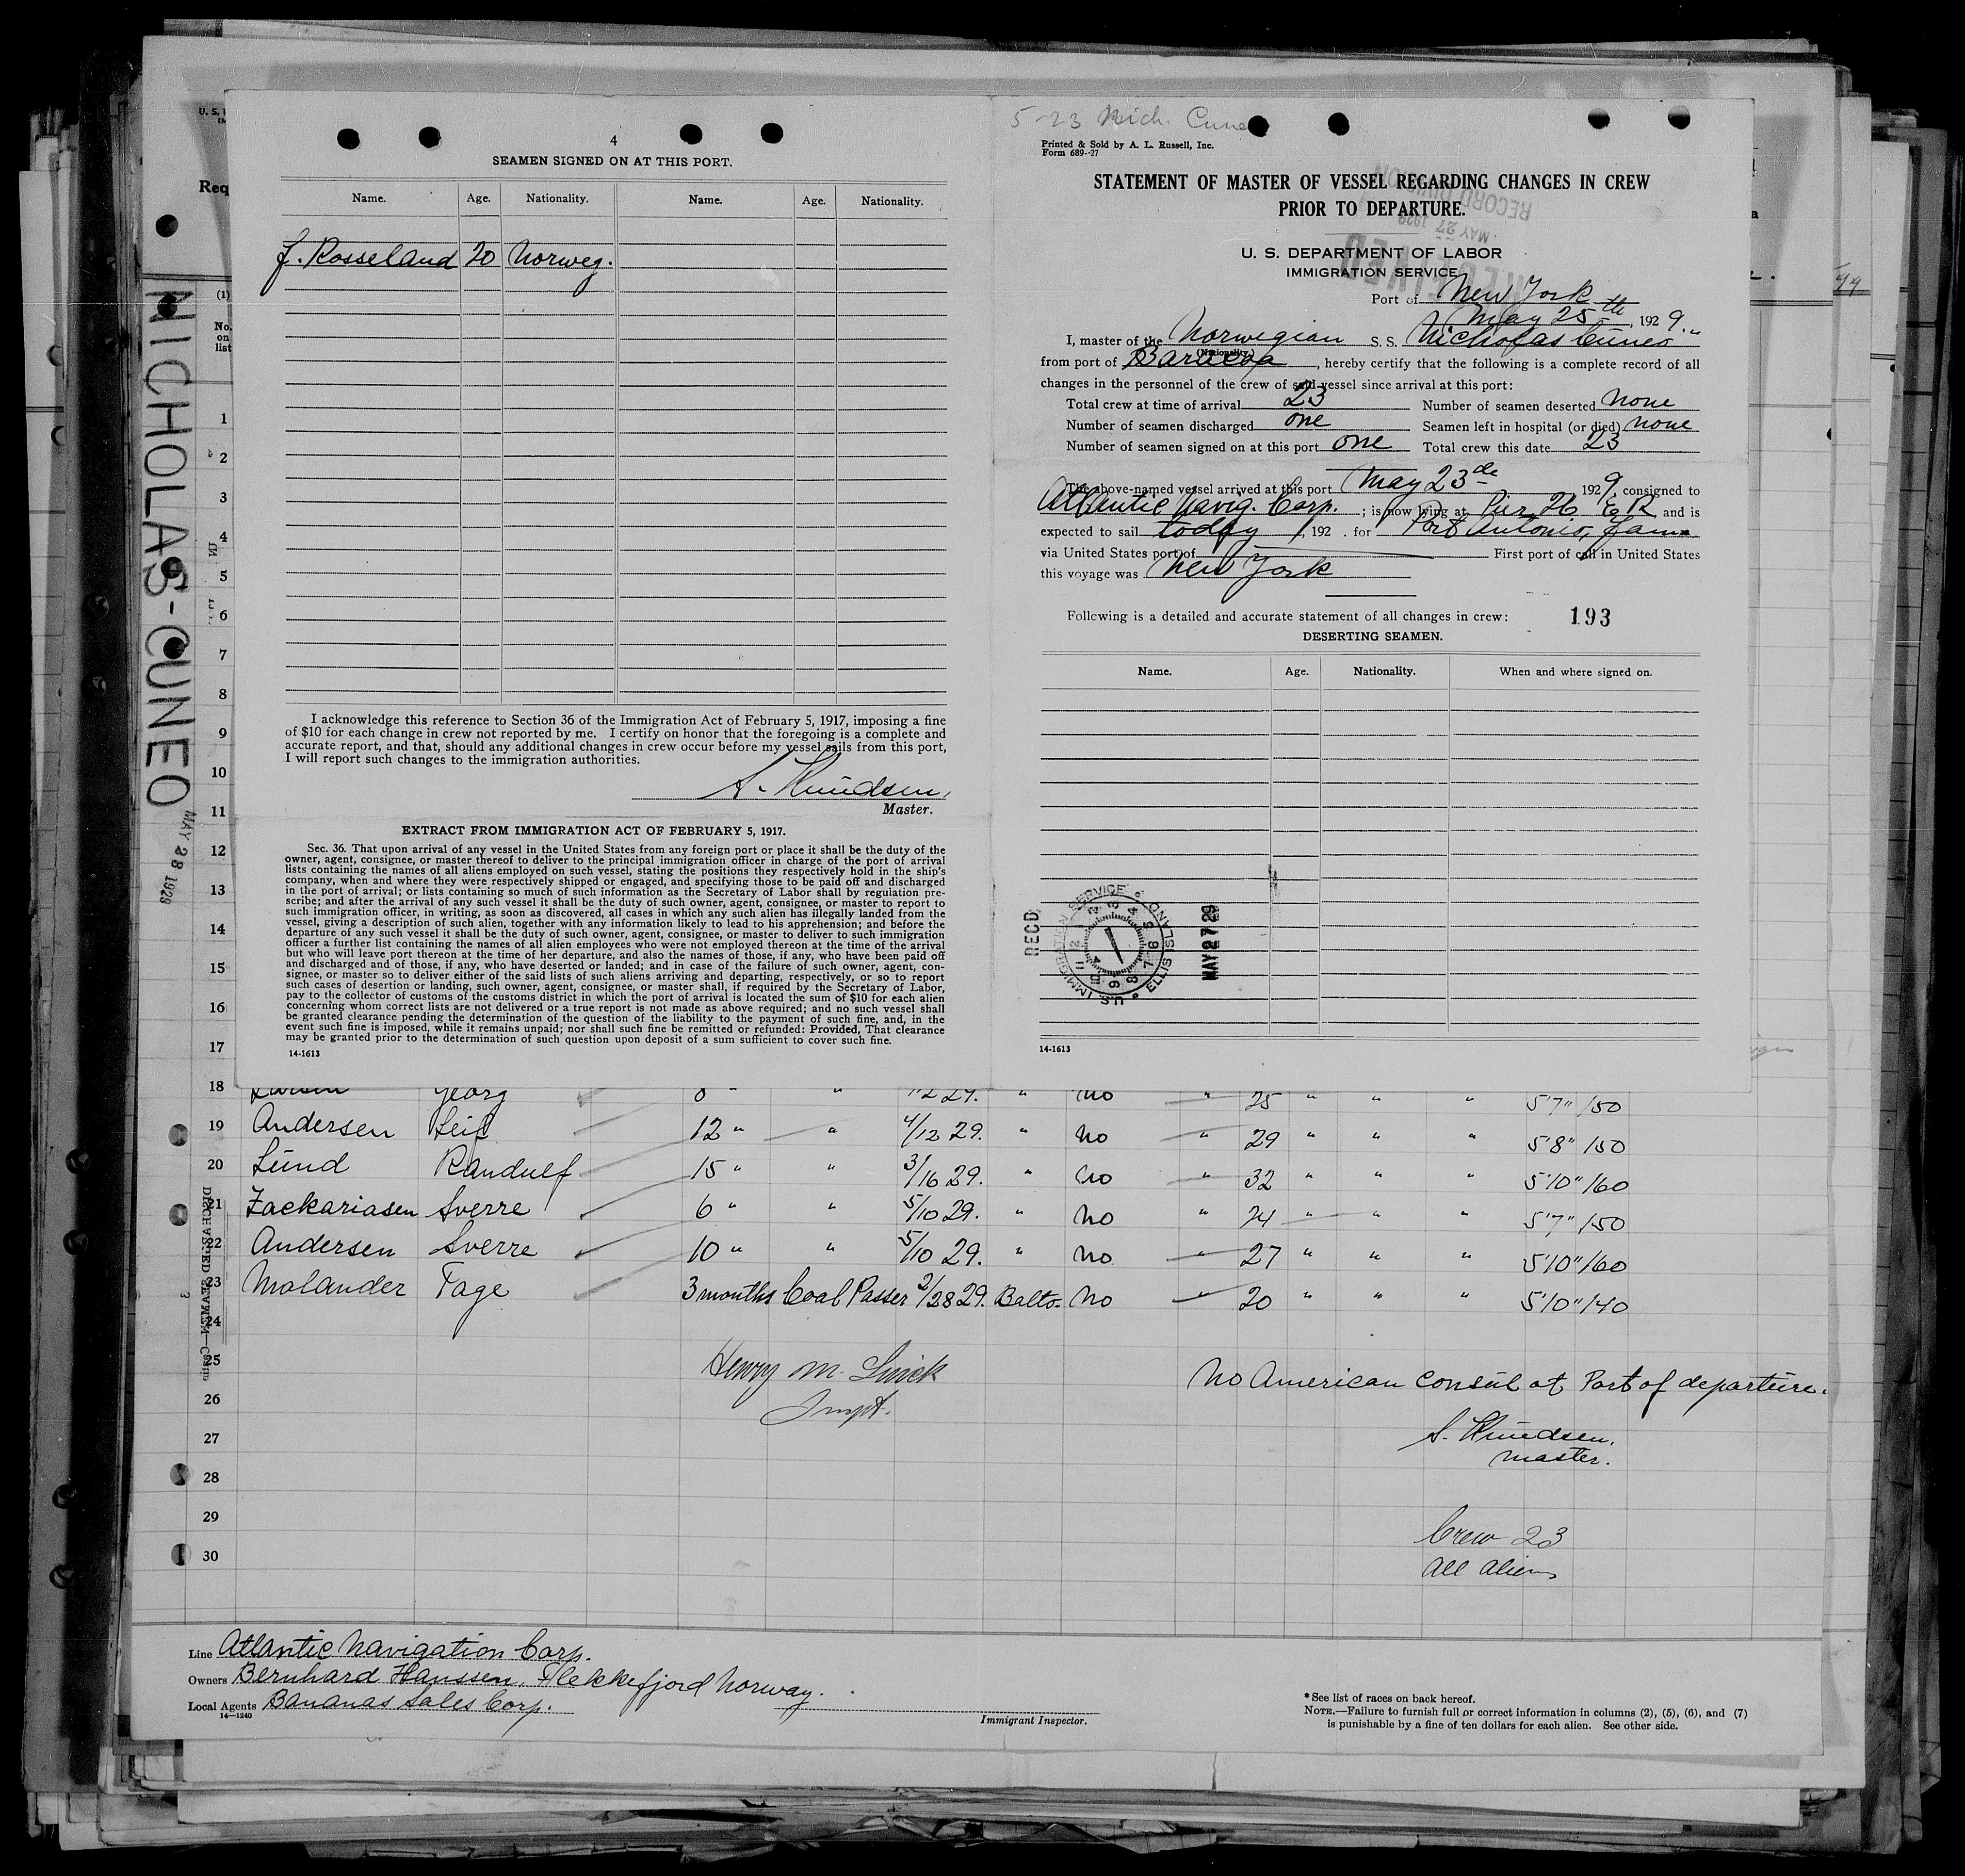 4
SEAMEN SIGNED ON AT THIS PORT.
Name. Age. Nationality. Name. Age. Nationality.
J. Rosseland 20 Norweg.
I acknowledge this reference to Section 36 of the Immigration Act of February 5, 1917, imposing a fine
of $10 for each change in crew not reported by me. I certify on honor that the foregoing is a complete and
accurate report, and that, should any additional changes in crew occur before my vessel sails from this port,
I will report such changes to the immigration authorities.
S. Knudsen,
Master.
EXTRACT FROM IMMIGRATION ACT OF FEBRUARY 5, 1917.
Sec. 36. That upon arrival of any vessel in the United States from any foreign port or place it shall be the duty of the
owner, agent, consignee, or master thereof to deliver to the principal immigration officer in charge of the port of arrival
lists containing the names of all aliens employed on such vessel, stating the positions they respectively hold in the ship's
company, when and where they were respectively shipped or engaged, and specifying those to be paid off and discharged
in the port of arrival; or lists containing so much of such information as the Secretary of Labor shall by regulation pre-
scribe; and after the arrival of any such vessel it shall be the duty of such owner, agent, consignee, or master to report to
such immigration officer, in writing, as soon as discovered, all cases in which any such alien has illegally landed from the
vessel, giving a description of such alien, together with any information likely to lead to his apprehension; and before the
departure of any such vessel it shall be the duty of such owner, agent, consignee, or master to deliver to such immigration
officer a further list containing the names of all alien employees who were not employed thereon at the time of the arrival
but who will leave port thereon at the time of her departure, and also the names of those, if any, who have been paid off
and discharged and of those, if any, who have deserted or landed; and in case of the failure of such owner, agent, con-
signee, or master so to deliver either of the said lists of such aliens arriving and departing, respectively, or so to report
such cases of desertion or landing, such owner, agent, consignee, or master shall, if required by the Secretary of Labor,
pay to the collector of customs of the customs district in which the port of arrival is located the sum of $10 for each alien
concerning whom correct lists are not delivered or a true report is not made as above required; and no such vessel shall
be granted clearance pending the determination of the question of the liability to the payment of such fine, and, in the
event such fine is imposed, while it remains unpaid; nor shall such fine be remitted or refunded: Provided, That clearance
may be granted prior to the determination of such question upon deposit of a sum sufficient to cover such fine.
14-1613
5-23 Nich. Cuneo
Printed & Sold by A. L. Russell, Inc.
Form 689--27
STATEMENT OF MASTER OF VESSEL REGARDING CHANGES IN CREW
PRIOR TO DEPARTURE.
RECEIVED
MAY 27 1929
RECORD DIVISION
U. S. DEPARTMENT OF LABOR
IMMIGRATION SERVICE
Port of New York
May 25th, 1929.
I, master of the Norwegian S. S. Nicholas Cuneo
(Nationality.)
from port of Baracoa, hereby certify that the following is a complete record of all
changes in the personnel of the crew of said vessel since arrival at this port:
Total crew at time of arrival 23 Number of seamen deserted None
Number of seamen discharged one Seamen left in hospital (or died) none
Number of seamen signed on at this port one Total crew this date 23
The above-named vessel arrived at this port May 23de 1929, consigned to
Atlantic Navig. Corp.; is now lying at Pier 26 E R and is
expected to sail today, 192 . for Port Antonio, Jama.
via United States port of First port of call in United States
this voyage was New York
Following is a detailed and accurate statement of all changes in crew: 193
DESERTING SEAMEN.
Name. Age. Nationality. When and where signed on.
RECD
U.S. IMMIGRATION SERVICE ELLIS ISLAND
MAY 27 29
14-1613
NICHOLAS-CUNEO
MAY 28 1929
U. S.
Req
(1)
No. on list
1
2
3
4
5
6
7
8
9
10
11
12
13
14
15
16
17
18 Larsen Georg 8 " " 29. " No " 25 " " " 5'7" 150
19 Andersen Leif 12 " " 4/12 29. " No " 29 " " " 5'8" 150
20 Lund Randulf 15 " " 3/16 29. " No " 32 " " " 5'10" 160
21 Zackariasen Sverre 6 " " 5/10 29. " No " 24 " " " 5'7" 150
22 Andersen Sverre 10 " " 5/10 29. " No " 27 " " " 5'10" 160
23 Molander Tage 3 months Coal Passer 2/28 29. Balto. No " 20 " " " 5'10" 140
24
25
26
27
28
29
30
DISCHARGED SEAMEN—Contin
3
Henry M.
Inspt.
No American Consul at Port of departure.
S. Knudsen,
master.
Crew 23
All aliens
Line Atlantic Navigation Corp.
Owners Bernhard Hanssen, Flekkefjord Norway.
Local Agents Bananas Sales Corp.
14—1240
Immigrant Inspector.
* See list of races on back hereof.
NOTE.—Failure to furnish full or correct information in columns (2), (5), (6), and (7)
is punishable by a fine of ten dollars for each alien. See other side.